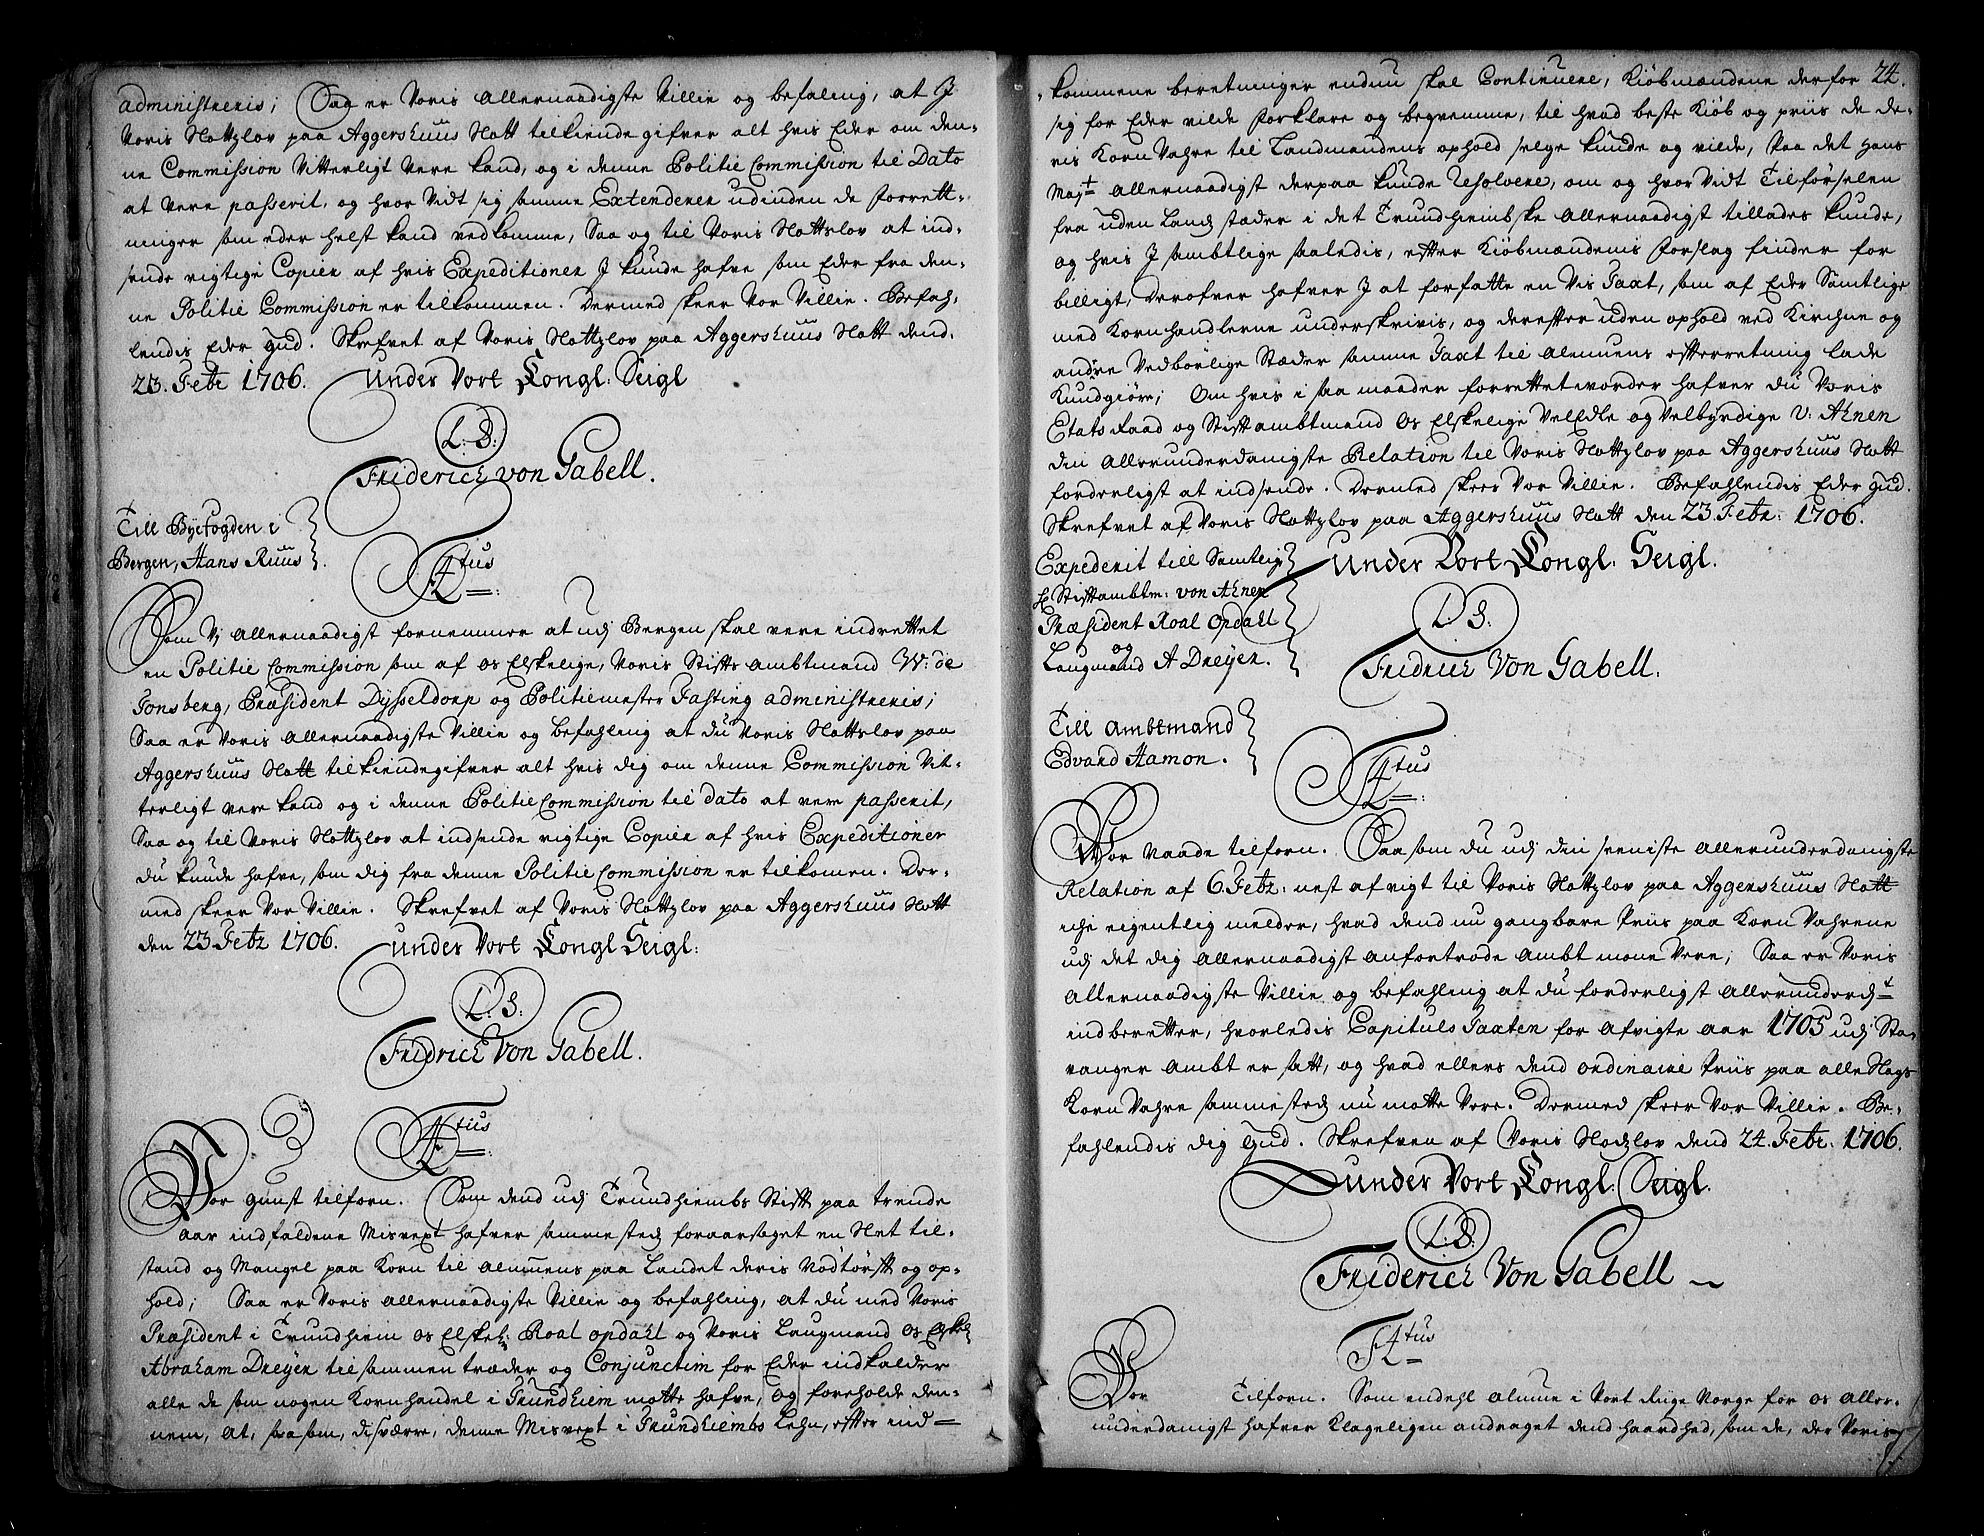 administreris; Saa er Voris Allernaadigste Villie og befaling, at J
Voris Slottzlov paa Aggershuus Slott tilkiende gifver alt hvis Eder om den-
ne Commission Vitterligt Vere kand, og i denne Politie Commission til Dato
at Vere passerit, og hvor Vidt sig samme Extenderer udinden de forrett-
ninger som eder helst kand vedkomme, Saa og til Voris Slottslov at ind-
sende rigtige Copier af hvis Expeditioner J kunde hafve som Eder fra den-
ne Politie Commission er tilkommen. Dermed skeer Vor Villie. Befah-
lendis Eder Gud. Skrefvet af Voris Slottzlov paa Aggershuus Slott dend.
23. Febr 1706. Under Vort Kongl: Seigl
L: S:
Friderich von Gabell.
Till Byefogden i
Bergen, Hans Ruus.
F4tus
Som Vj Allernaadigst fornemmer at udj Bergen skal vere indrettet
en Politie Commission som af os Elskelige, Voris Stifts Ambtmand W: de
Tonsberg, Præsident Dysseldorp og Politiemester Fasting administreris;
Saa er Voris Allernaadigste Villie og befahling at du Voris Slottslov paa
Aggershuus Slott tilkiendegifver alt hvis dig om denne Commission Vit-
terligt vere kand og i denne Politie Commission til dato at vere passerit,
Saa og til Voris Slottzlov at indsende rigtige Copier af hvis Expeditioner
du kunde hafve, som dig fra denne Politie Commission er tilkomen. Der-
med skeer Vor Villie. Skrefvet af Voris Slottzlov paa Aggershuus Slott
den 23 Febr 1706. under Vort Kongl Seigl:
L: S:
Fridrich Von Gabell.
F4tus
Vor gunst tilforn. Som dend udj Trundhiembs Stift paa trende
aar indfaldene Misvext hafver sammestedz foraarsaget en Slet til-
stand og Mangel paa Korn til almuens paa Landet deris Nødtørfft og op-
hold; Saa er Voris allernaadigste Villie og befahling, at du med Voris
Præsident i Trundhiem os Elskel: Roal Opdahl og Voris Laugmand os Elskel
Abraham Dreyer tilsammen træder og Conjunctim for Eder indkalder
alle de som nogen Kornhandel i Trundhiem motte hafve, og foreholde den-
nem, at, saasom, disværre, denne Misvext i Trundhiembs Lehn, efter ind-
24.
kommene beretninger endnu skal Continuere, Kiøbmændene derfor
sig for Eder vilde forklare og beqvemme, til hvad beste Kiøb og priis de de-
ris Korn Vahre til Landmandens ophold selge kunde og vilde, Paa det Hans
Majt Allernaadigst derpaa kunde Resolvere, om og hvor Vidt Tilførselen
fra uden Landz stæder i det Trundhiembske Allernaadigst tillades kunde,
og hvis J sambtlige saaledis, effter Kiøbmændenis forslag finder for
billigt, derofver hafver J at forfatte en Vis Taxt, som af Eder Samtlige
med Kornhandlerne underskrivis, og dereffter uden ophold ved Kirchne og
andre Vedbørlige Stæder samme Taxt til Almuens effterretning lade
Kundgiøre; Om hvis i saa maader forrettet vorder hafver du Voris
Etats Raad og Stiftambtmand os Elskelige VelEdle og Velbyrdige V: Ahnen
din Allerunderdanigste Relation til Voris Slottzlov paa Aggershuus Slott
forderligst at indsende. Dermed skeer Vor Villie. Befahlendis Eder Gud.
Skrefvet af Voris Slottzlov paa Aggershuus Slott den 23 Febr: 1706.
Expederit till Samtlig
Hr Stiftambtm: von Ahnen
Præsident Roal Opdahl
og
Laugmand A Dreyer.
Under Vort Kongl. Seigl.
L: S:
Fridrich Von Gabell.
Till Ambtmand
Edvard Hamon.
F4tus
Vor Naade tilforn. Saasom du udj din seeniste Allerunderdanigste
Relation af 6. Febr: nest afvigt til Voris Slottzlov paa Aggershuus Slott
iche eigentlig melder, hvad dend nu gangbare Priis paa Korn Vahrene
udj det dig Allernaadigst Anfortrode Ambt mone Vere; Saa er Voris
Allernaadigste Villie og befahling at du forderligst Allerunderdt
indberetter, hvorledis Capituls Taxten for afvigte aar 1705 udj Sta-
vanger Ambt er satt, og hvad ellers dend ordinaire Priis paa alle Slags
Korn Vahre sammestedz nu motte Vere. Dermed skeer Vor Villie. Be-
fahlendis dig Gud. Skrefven af Voris Slodzlov dend 24. Febr: 1706.
under Vort Kongl. Seigl.
L: S:
Friderich Von Gabell
F4tus
Vor Tilforn. Som endehl Almue i Vort Rige Norge for os Aller-
underdanigst hafver Klageligen andraget dend haardhed, som de, der Voris